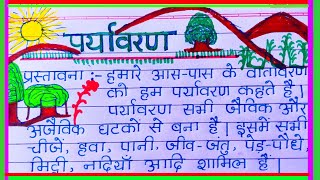 पर्यावरण
प्रस्तावना :- हमारे आस-पास के वातावरण
को हम पर्यावरण कहते है।
पर्यावरण सभी जैविक और
अजैविक घटकों से बना है। इसमें सभी
चीजें, हवा, पानी, जीव-जंतु, पेड़-पौधे,
मिट्टी, नदियाँ आदि शामिल हैं।